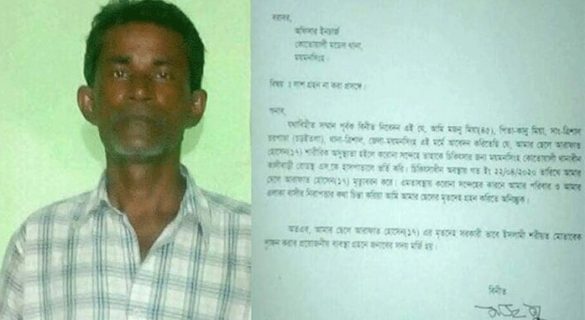 বরাবর,
অফিসার ইনচার্জ
কোতোয়ালী মডেল থানা,
ময়মনসিংহ।
বিষয় : লাশ গ্রহন না করা প্রসঙ্গে।
জনাব,
যথাবিহীত সম্মান পূর্বক বিনীত নিবেদন এই যে, আমি মজনু মিয়া(৪৫), পিতা-কালু মিয়া, সাং-ত্রিশাল
চরপাড়া থানা-ত্রিশাল, জেলা-ময়মনসিংহ এই মর্মে আবেদন করিতেছি যে, আমার ছেলে আরাফাত
হোসেন(১৭) শারীরিক অসুস্থতা হইলে করোনা সন্দেহে তাহাকে চিকিৎসার জন্য ময়মনসিংহ কোতোয়ালী থানাধীন
কালীবাড়ী রোডস্থ এস,কে হাসপাতালে ভর্তি করি। চিকিৎসাধীন অবস্থায় গত ইং ২২/০৪/২০২০ তারিখে আমার
ছেলে আরাফাত হোসেন(১৭) মৃত্যুবরন করে। এমতাবস্থায় করোনা সন্দেহের কারনে আমার পরিবার ও আমার
এলাকা বাসীর নিরাপত্তার কথা চিন্তা করিয়া আমি আমার ছেলের মৃতদেহ গ্রহন করিতে অনিচ্ছুক।
অতএব, আমার ছেলে আরাফাত হোসেন(১৭) এর মৃতদেহ সরকারী ভাবে ইসলামী শরীয়ত মোতাবেক
দাফন করার প্রয়োজনীয় ব্যবস্থা গ্রহনে জনাবের সদয় মর্জি হয়।
বিনীত